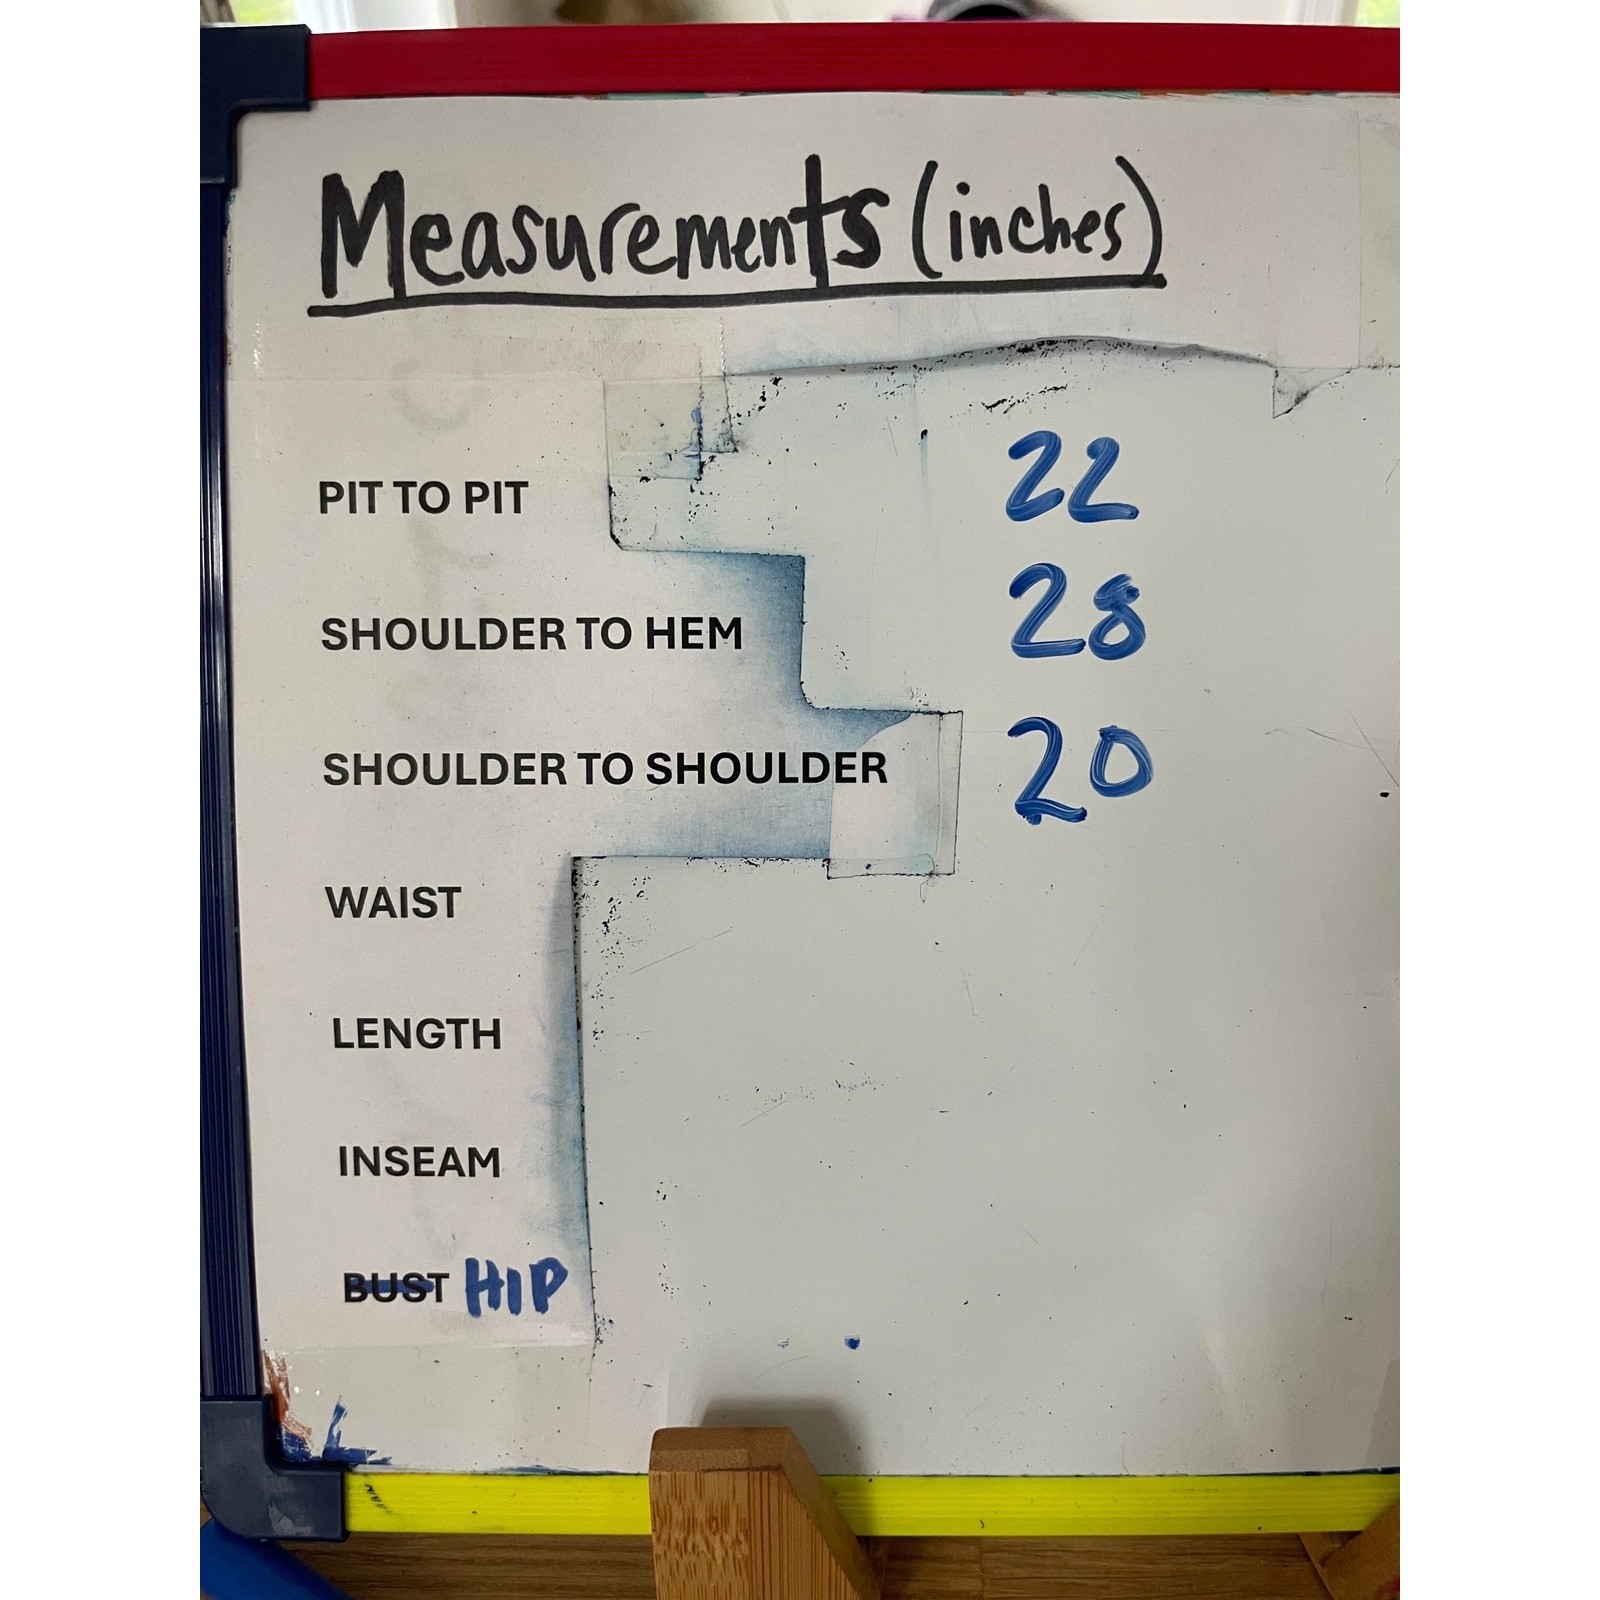 Measurements (inches)
PIT TO PIT 22
SHOULDER TO HEM 28
SHOULDER TO SHOULDER 20
WAIST
LENGTH
INSEAM
BUST HIP